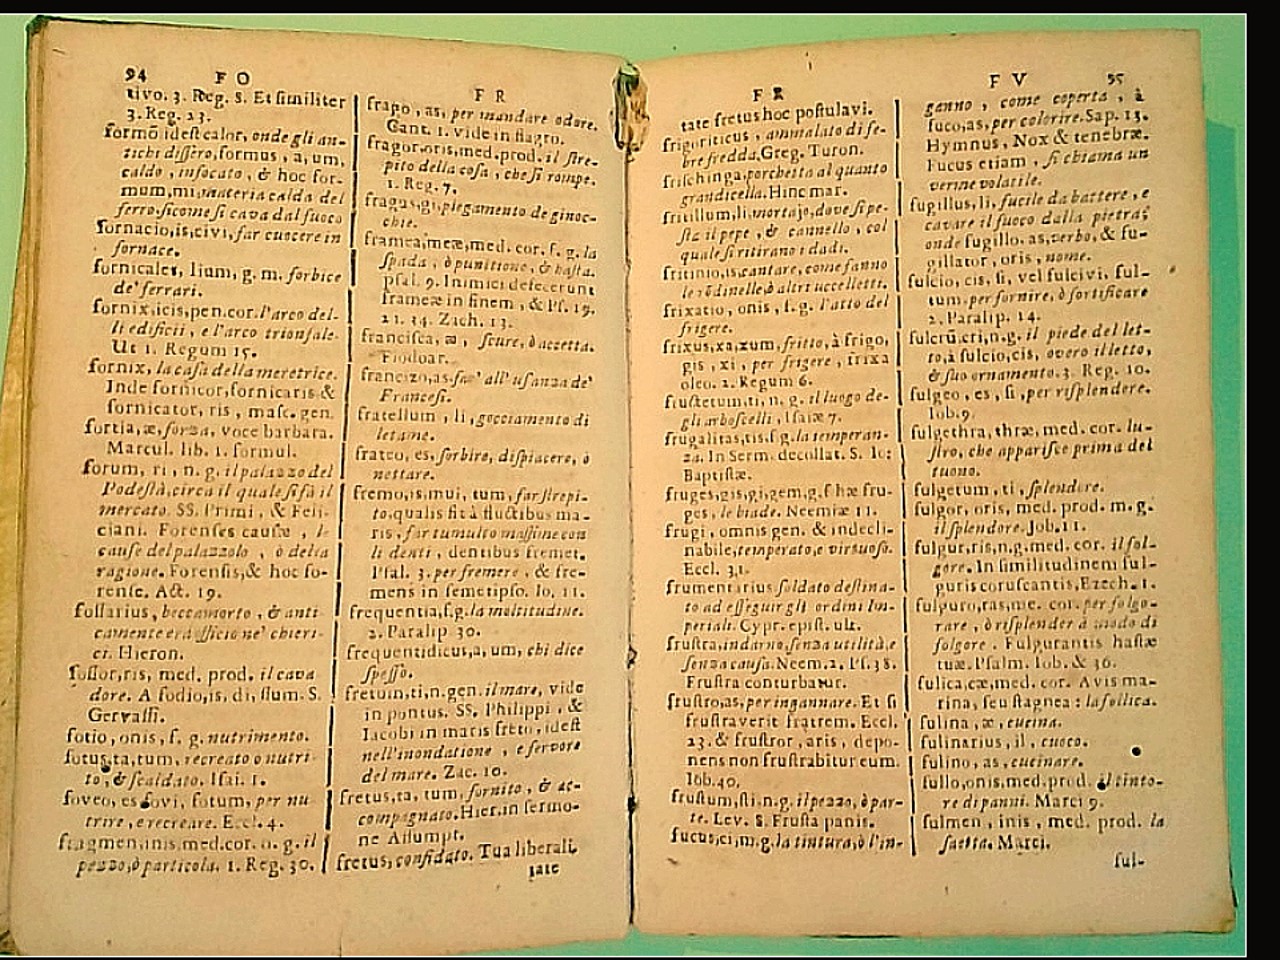 94 F O
tivo. 3. Reg. 8. Et ſimiliter
3. Reg. 23.
formō ideſt calor, onde gli an-
tichi diſſero, formus, a, um,
caldo, infocato, & hoc for-
mum, mi, materia calda del
ferro, ſicome ſi cava dal fuoco
fornacio, is, civi, far cuocere in
fornace.
fornicales, lium, g. m. forbice
de' ferrari.
fornix, icis, pen. cor. l'arco del-
li edificii, e l'arco trionfale.
Ut 1. Regum 15.
fornix, la caſa della meretrice.
Inde fornicor, fornicaris &
fornicator, ris, maſc. gen.
fortia, æ, forza, voce barbara.
Marcul. lib. 1. formul.
forum, ri, n. g. il palazzo del
Podeſtà, circa il quale ſi fà il
mercato. SS. Primi, & Feli-
ciani. Forenſes cauſæ, le
cauſe del palazzolo, ò della
ragione. Forenſis, & hoc fo-
renſe. Act. 19.
foſſarius, beccamorto, & anti-
camente era officio ne' chieri-
ci. Hieron.
foſſor, ris, med. prod. il cava
dore. A fodio, is, di, ſſum. S.
Gervaſſi.
fotio, onis, f. g. nutrimento.
fotus, ta, tum, recreato o nutri-
to, & ſcaldato. Iſai. 1.
foveo, es fovi, fotum, per nu
trire, e recreare. Eccl. 4.
fragmen, inis, med. cor. n. g. il
pezzo, ò particola. 1. Reg. 30.
F R
frapo, as, per mandare odore.
Cant. 1. vide in flagro.
fragor, oris, med. prod. il ſtre-
pito della coſa, che ſi rompe.
1. Reg. 7.
fragus, gi, piegamento de ginoc-
chie.
framea, meæ, med. cor. f. g. la
ſpada, ò punitione, & haſta.
pſal. 9. Inimici defecerunt
frameæ in finem, & Pſ. 19.
21. 34. Zach. 13.
franciſca, æ, ſcure, ò accetta.
Flodoar.
francizo, as, far' all' uſanza de'
Franceſi.
fratellum, li, gocciamento di
letame.
frateo, es, ſorbire, diſpiacere, ò
nettare.
fremo, is, mui, tum, far ſtrepi-
to, qualis fit à fluctibus ma-
ris, far tumulto maſſime con
li denti, dentibus fremet.
Pſal. 3. per fremere, & fre-
mens in ſemetipſo. Io. 11.
frequentia, f. g. la moltitudine.
2. Paralip 30.
frequentidicus, a, um, chi dice
ſpeſſo.
fretum, ti, n. gen. il mare, vide
in pontus. SS. Philippi, &
Iacobi in maris freto, ideſt
nell'inondatione, e fervore
del mare. Zac. 10.
fretus, ta, tum, fornito, & ac-
compagnato. Hier. in ſermo-
ne Aſſumpt.
fretus, confidato. Tua liberali.
tate
F R
tate fretus hoc poſtulavi.
frigoriticus, ammalato di fe-
bre fredda. Greg. Turon.
friſchinga, porchetta al quanto
grandicella. Hincmar.
fritillum, li, mortajo, dove ſi pe-
ſta il pepe, & cannello, col
quale ſi ritirano i dadi.
fritinio, is, cantare, come fanno
le rōdinelle ò altri uccelletti.
frixatio, onis, f. g. l'atto del
frigere.
frixus, xa, xum, fritto, à frigo,
gis, xi, per frigere, frixa
oleo. 2. Regum 6.
fructetum, ti, n. g. il luogo de-
gli arboſcelli, Iſaiæ 7.
frugalitas, tis. f. g. la temperan-
za. In Serm. decollat. S. Io:
Baptiſtæ.
fruges, gis, gi, gem, g. f hæ fru-
ges, le biade. Neemiæ 11.
frugi, omnis gen. & indecli-
nabile, temperato, e virtuoſo.
Eccl. 31.
frumentarius, ſoldato deſtina-
to ad eſſeguir gli ordini Im-
periali. Cypr. epiſt. ult.
fruſtra, indarno, ſenza utilità, e
ſenza cauſa. Neem. 2. Pſ. 38.
Fruſtra conturbatur.
fruſtro, as, per ingannare. Et ſi
fruſtraverit fratrem. Eccl.
23. & fruſtror, aris, depo-
nens non fruſtrabitur eum.
Iob. 40.
fruſtum, ſti. n. g. il pezzo, ò par-
te. Lev. 8. Fruſta panis.
fucus, ci, m. g. la tintura, ò l'in-
F V 95
ganno, come coperta, à
fuco, as, per colorire. Sap. 13.
Hymnus, Nox & tenebræ.
Fucus etiam, ſi chiama un
verme volatile.
fugillus, li, fucile da battere, e
cavare il fuoco dalla pietra;
onde fugillo. as, verbo, & fu-
gillator, oris, nome.
fulcio, cis, ſi, vel fulcivi, ful-
tum. per fornire, ò fortificare
2. Paralip. 14.
fulcrū, cri, n. g. il piede del let-
to, à fulcio, cis, overo il letto,
& ſuo ornamento. 3. Reg. 10.
fulgeo, es, ſi, per riſplendere.
Iob. 9.
fulgethra, thræ, med. cor. lu-
ſtro, che appariſce prima del
tuono.
fulgetum, ti, ſplendore.
fulgor, oris, med. prod. m. g.
il ſplendore. Job. 11.
fulgur, ris, n. g. med. cor. il fol-
gore. In ſimilitudinem ful-
guris coruſcantis, Ezech. 1.
fulguro, ras, me. cor. per folgo-
rare, ò riſplender à modo di
folgore. Fulgurantis haſtæ
tuæ. Pſalm. Iob. & 36.
fulica, cæ, med. cor. Avis ma-
rina, ſeu ſtagnea: la follica.
fulina, æ, cucina.
fulinarius, il, cuoco.
fulino, as, cucinare.
fullo, onis, med. prod. il tinto-
re di panni. Marci 9.
fulmen, inis, med. prod. la
ſaetta. Marci.
ful-